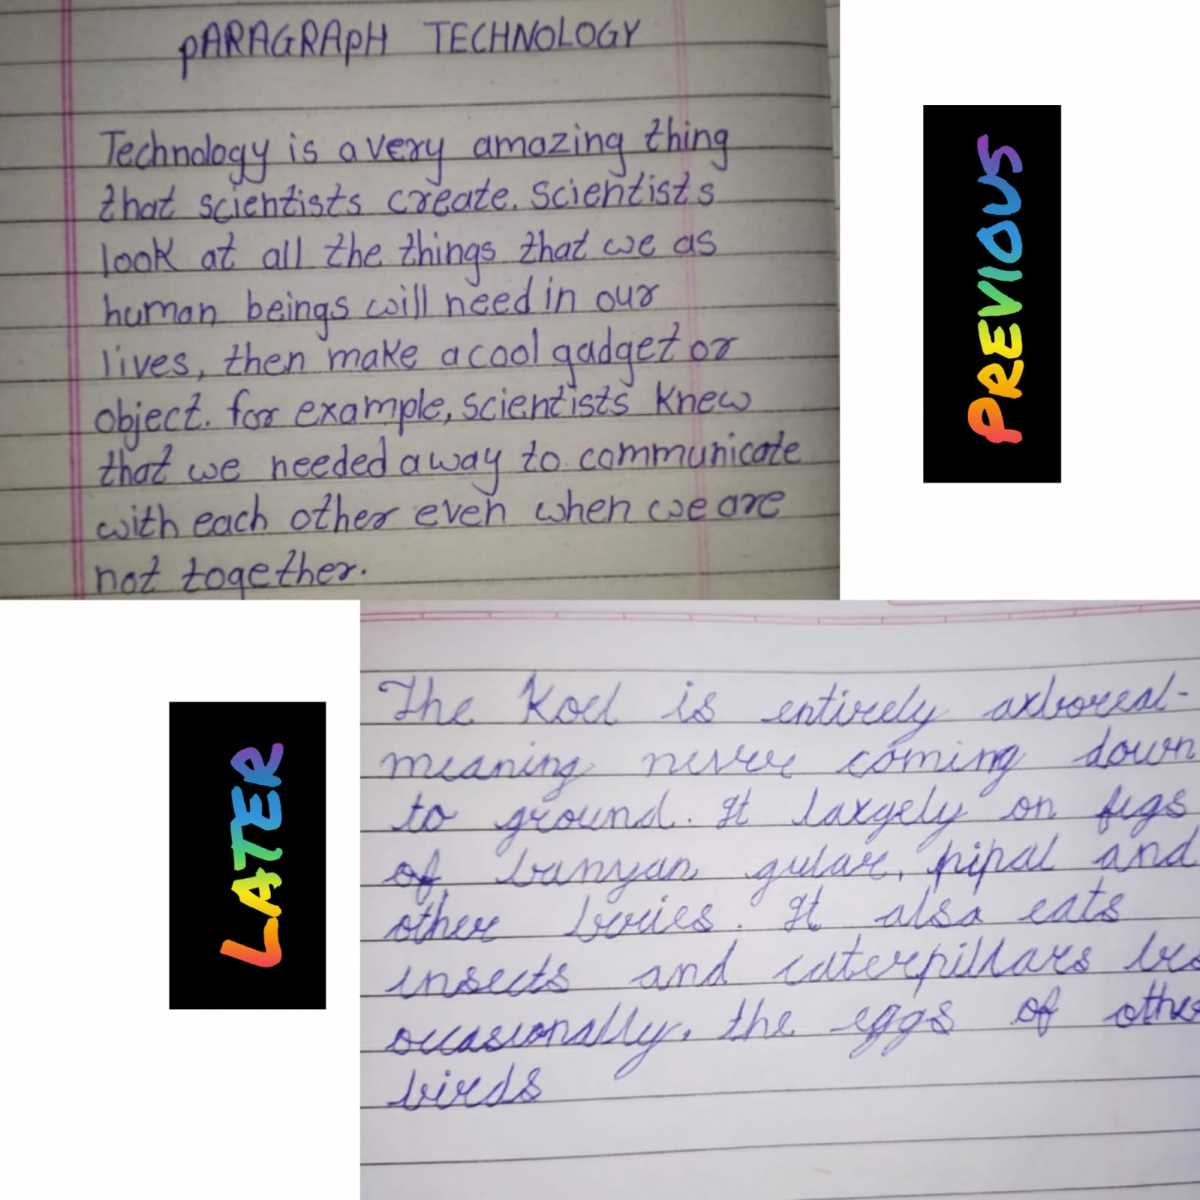 pARAGRApH TECHNOLOGY
Technology is a very amazing thing
that scientists create. Scientists
look at all the things that we as
human beings will need in our
lives, then make a cool gadget or
object. for example, scientists knew
that we needed a way to communicate
with each other even when we are
not together.
PREVIOUS
LATER
The Koel is entirely arboreal-
meaning never coming down
to ground. It largely on figs
of banyan gular, pipal and
other beries. It also eats
insects and caterpillars
occasionally, the eggs of other
birds